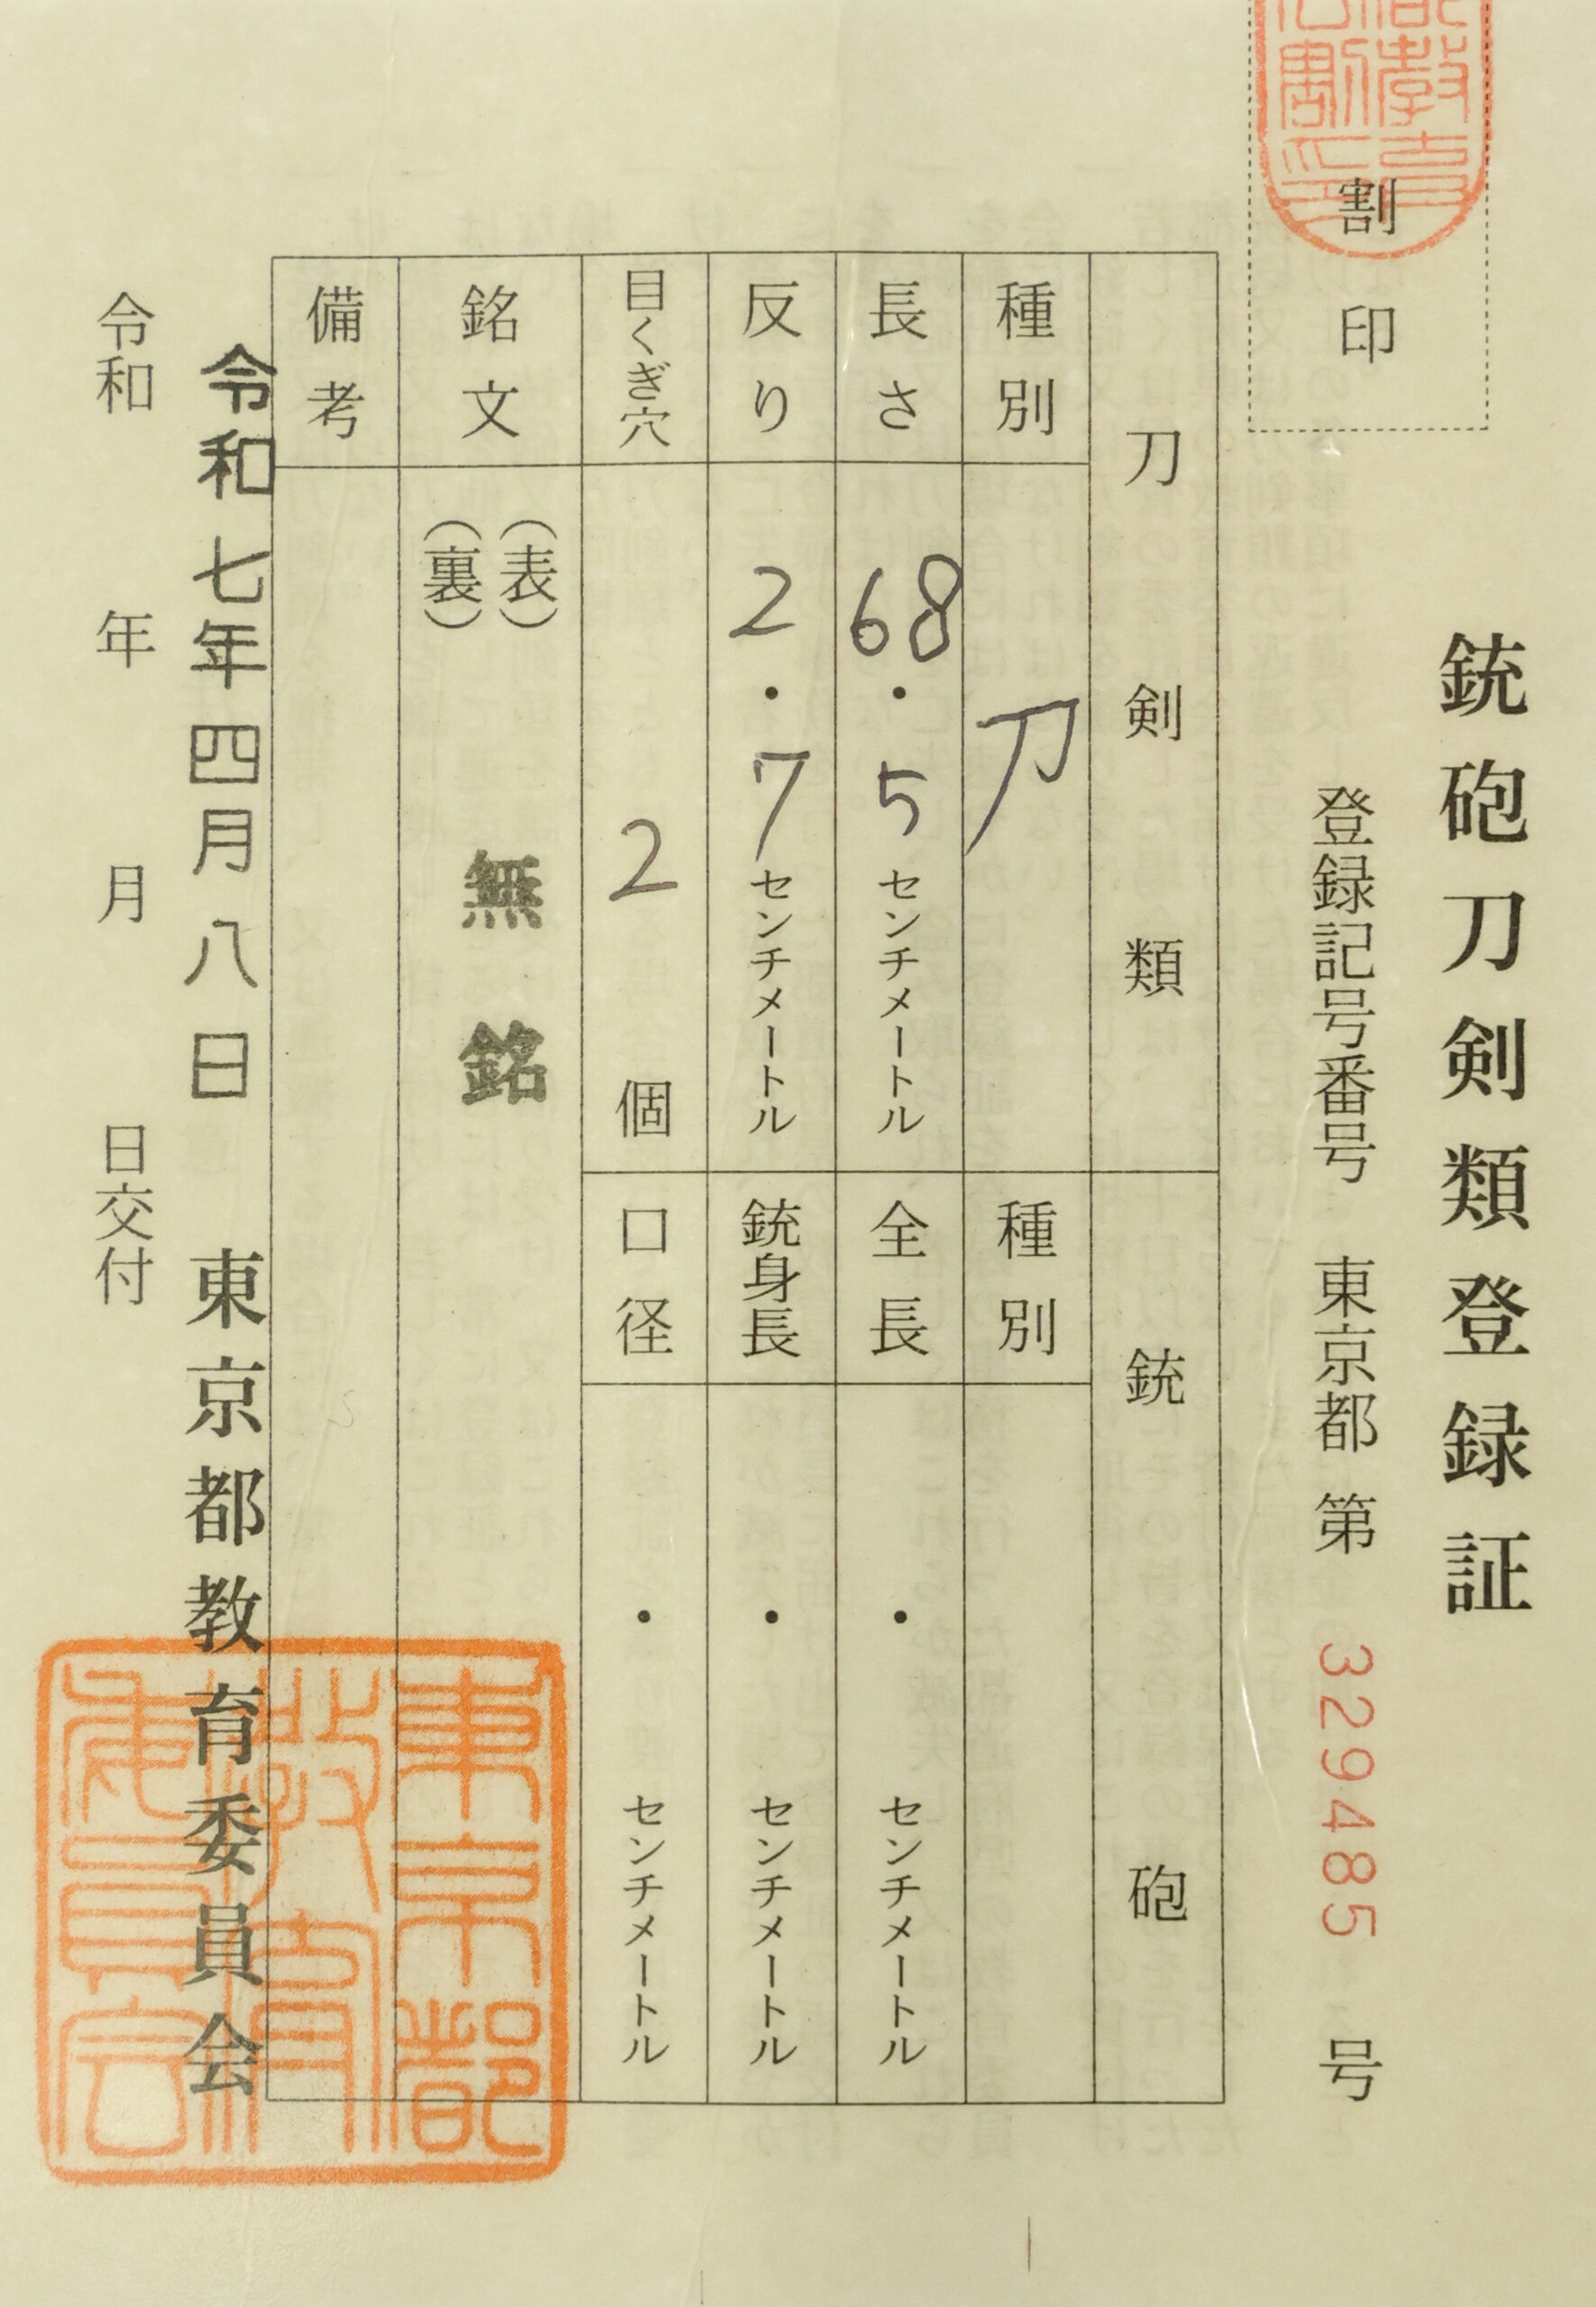 銃砲刀剣類登録証
割印
登録記号番号 東京都 第 329485 号
刀剣類
銃砲
種別 刀
種別
長さ 68.5 センチメートル
全長 ・ センチメートル
反り 2.7 センチメートル
銃身長 ・ センチメートル
目くぎ穴 2 個
口径 ・ センチメートル
銘文
(表)
(裏)
無銘
備考
令和七年四月八日
東京都教育委員会
令和 年 月 日交付
東京都
教育
委員会